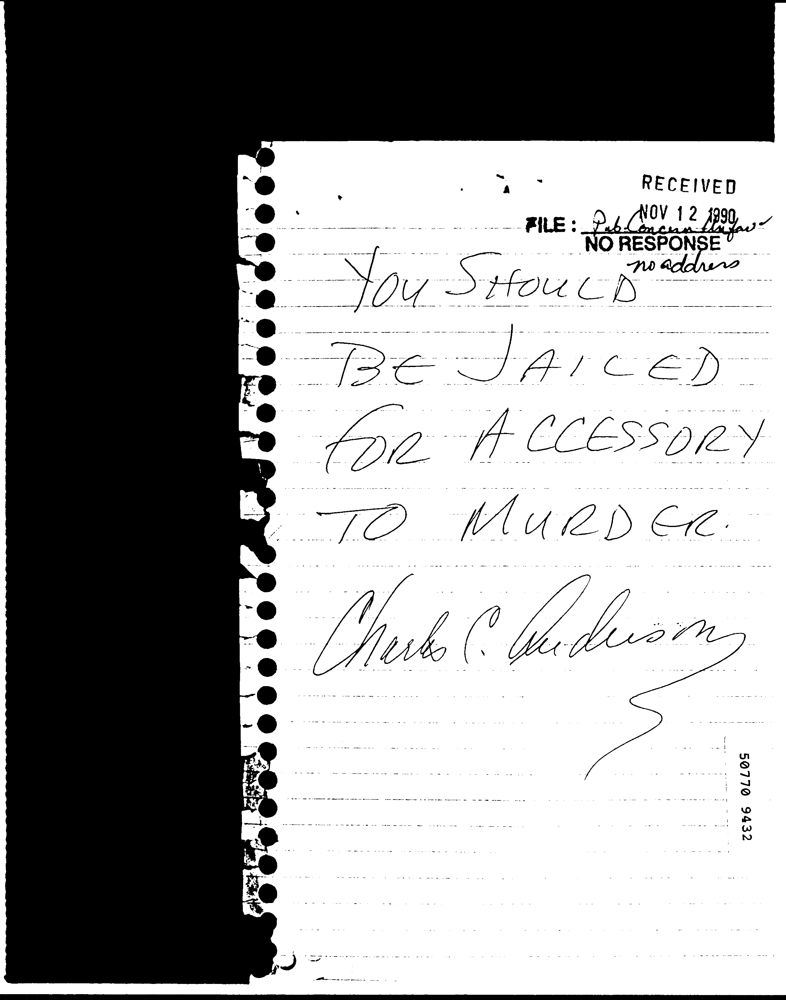 RECEIVED
NOV 12 1990
FILE: Pub Concern Unfav
NO RESPONSE
no address
YOU SHOULD
BE JAILED
FOR ACCESSORY
TO MURDER.
Charles C. Anderson
50770 9432